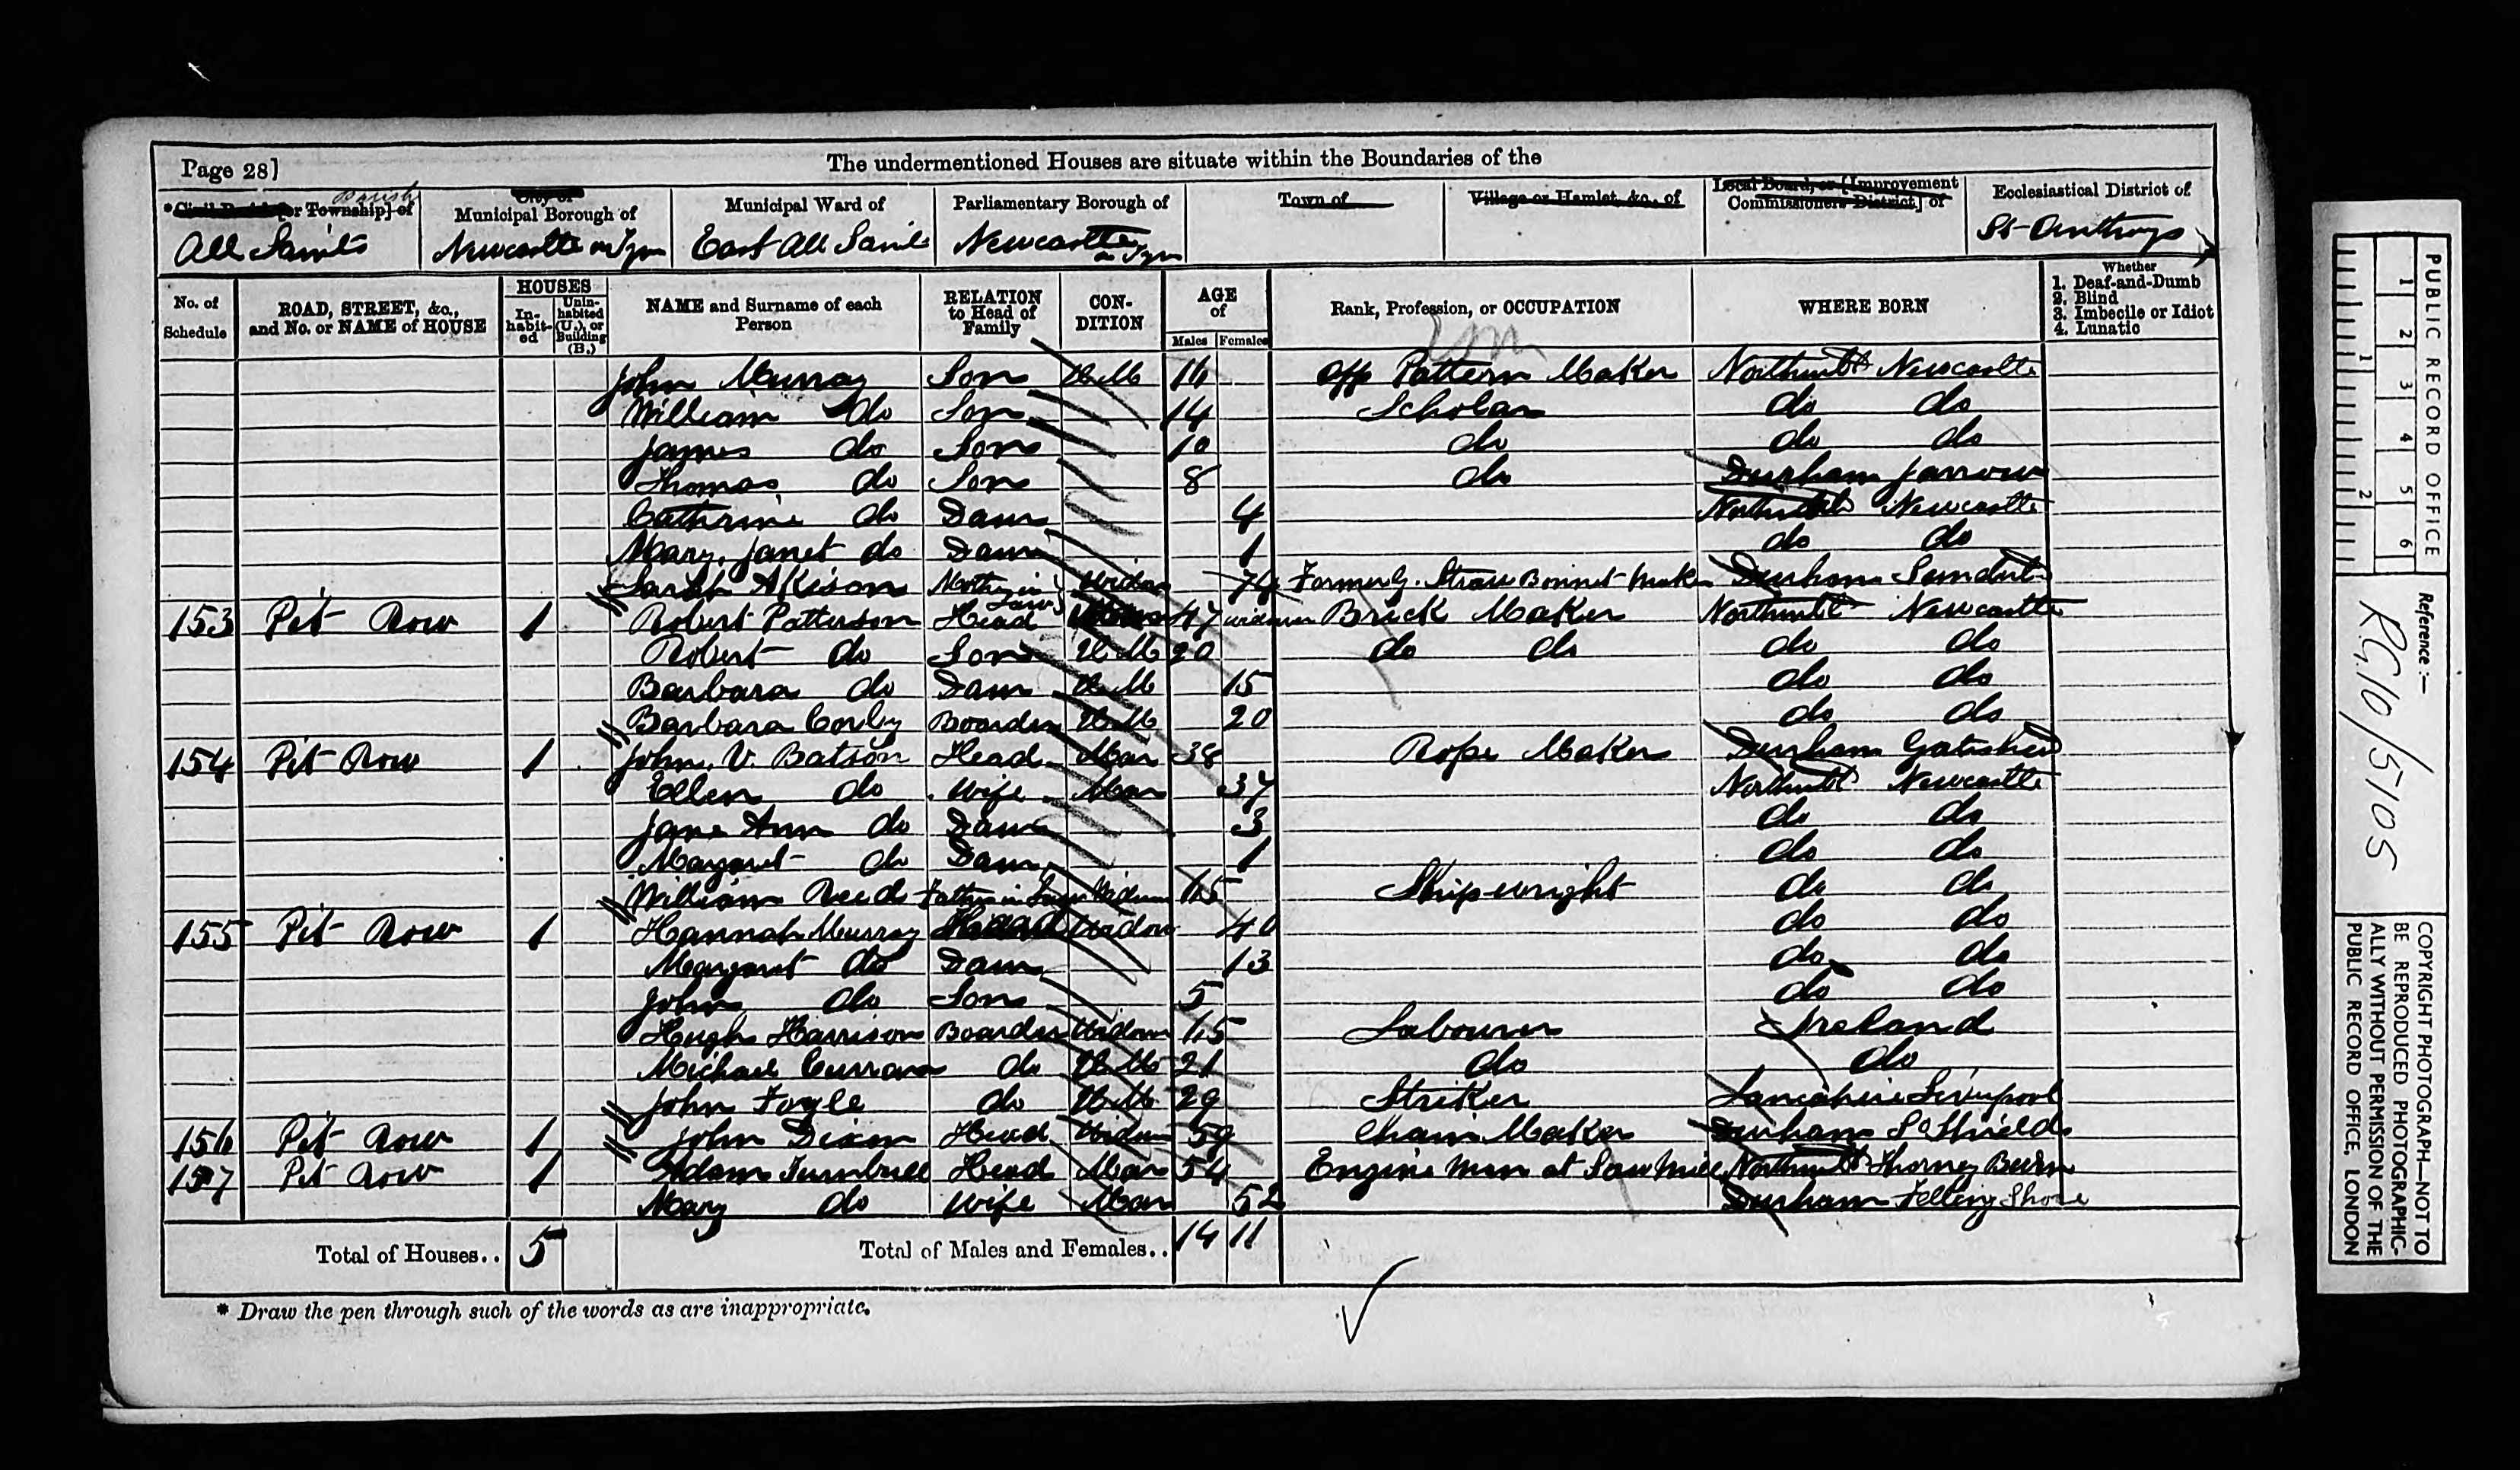 Page 28]
The undermentioned Houses are situate within the Boundaries of the
*Civil Parish [or Township] of Parish
All Saints
City or Municipal Borough of
Newcastle on Tyne
Municipal Ward of
East All Saints
Parliamentary Borough of
Newcastle on Tyne
Town of
Village or Hamlet, &c., of
Local Board, or [Improvement Commissioners District] of
Ecclesiastical District of
St Anthonys
No. of Schedule
ROAD, STREET, &c., and No. or NAME of HOUSE
HOUSES
In-habit-ed
Unin-habited (U.), or Building (B.)
NAME and Surname of each Person
RELATION to Head of Family
CON-DITION
AGE of
Males Females
Rank, Profession, or OCCUPATION
WHERE BORN
Whether
1. Deaf-and-Dumb
2. Blind
3. Imbecile or Idiot
4. Lunatic
John Murray Son UM 16 App Pattern Maker Northumbd Newcastle
William do Son 14 Scholar do do
James do Son 10 do do do
Thomas do Son 8 do Durham Jarrow
Cathrine do Daur 4 Northumbd Newcastle
Mary Janet do Daur 1 do do
Sarah Akison Mother in Law Widow 74 Formerly Straw Bonnet Maker Durham Sunderld
153 Pit Row 1 Robert Patterson Head 47 widower Brick Maker Northumbd Newcastle
Robert do Son UM 20 do do do do
Barbara do Daur UM 15 do do
Barbara Corby Boarder UM 20 do do
154 Pit Row 1 John V. Batson Head Mar 38 Rope Maker Durham Gateshead
Ellen do Wife Mar 37 Northumbd Newcastle
Jane Ann do Daur 3 do do
Margaret do Daur 1 do do
William Reed Father in Law Widower 65 Shipwright do do
155 Pit Row 1 Hannah Murray Head Widow 40 do do
Margaret do Daur 13 do do
John do Son 5 do do
Hugh Harrison Boarder Widower 65 Labourer Ireland
Michael Curran do UM 21 do do
John Foyle do UM 29 Striker Lancashire Liverpool
156 Pit Row 1 John Dixon Head Widower 59 Chain Maker Durham So Shields
157 Pit Row 1 Adam Turnbull Head Mar 54 Engine Man at Saw Mill Northumbd Thorney Burn
Mary do Wife Mar 52 Durham Felling Shore
Total of Houses.. 5 Total of Males and Females.. 14 11
* Draw the pen through such of the words as are inappropriate.
PUBLIC RECORD OFFICE
1 2 3 4 5 6
1 2
Reference:—
RG.10/5105
COPYRIGHT PHOTOGRAPH—NOT TO
BE REPRODUCED PHOTOGRAPHIC-
ALLY WITHOUT PERMISSION OF THE
PUBLIC RECORD OFFICE, LONDON